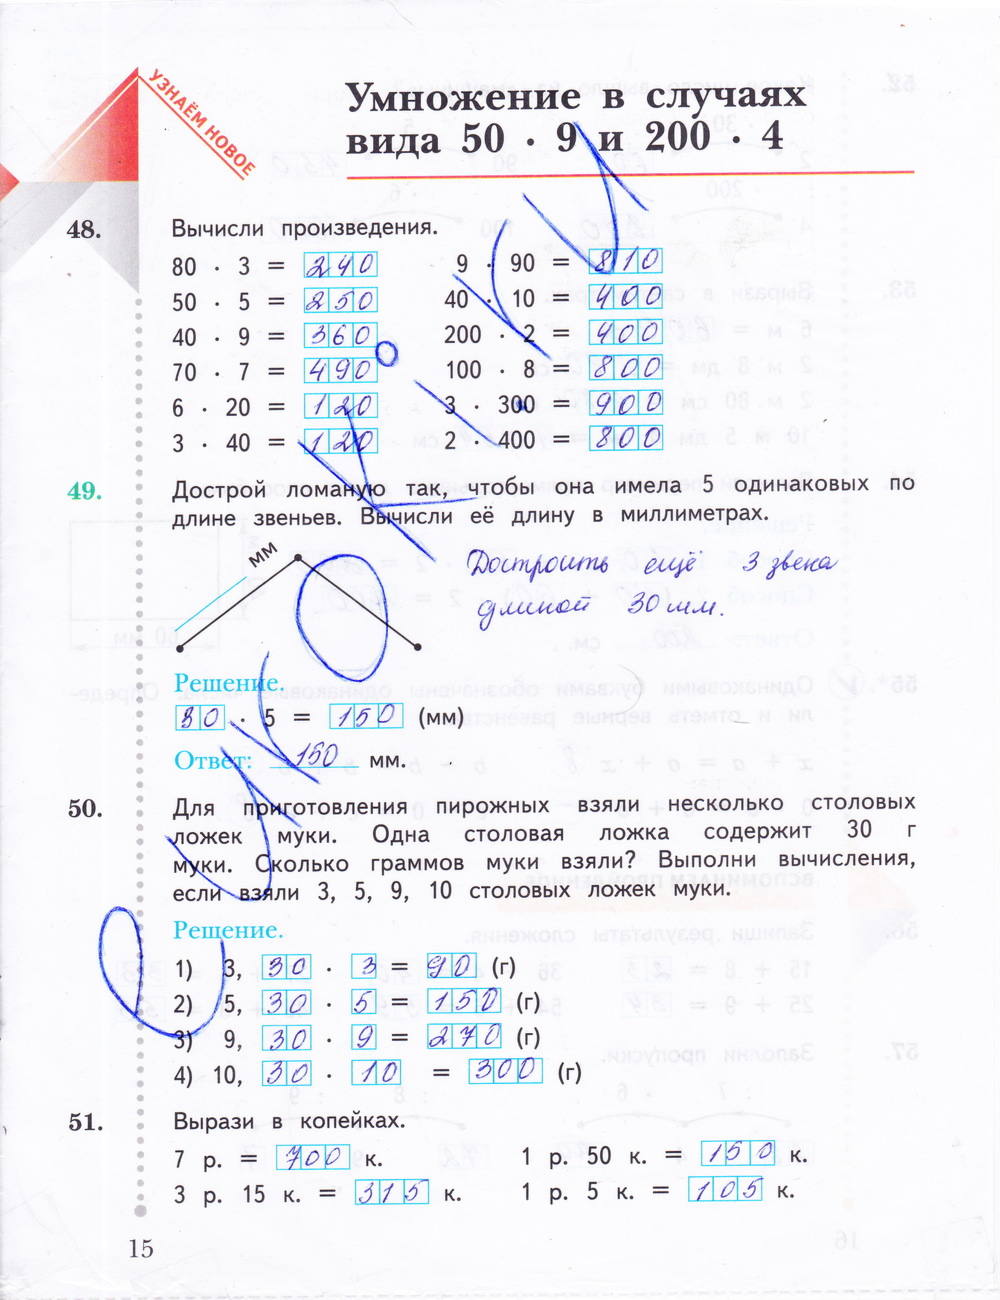 УЗНАЁМ НОВОЕ
Умножение в случаях
вида 50 · 9 и 200 · 4
48. Вычисли произведения.
80 · 3 = 240 9 · 90 = 810
50 · 5 = 250 40 · 10 = 400
40 · 9 = 360 200 · 2 = 400
70 · 7 = 490 100 · 8 = 800
6 · 20 = 120 3 · 300 = 900
3 · 40 = 120 2 · 400 = 800
49. Дострой ломаную так, чтобы она имела 5 одинаковых по
длине звеньев. Вычисли её длину в миллиметрах.
мм
Достроить ещё 3 звена
длиной 30 мм.
Решение.
30 · 5 = 150 (мм)
Ответ: 150 мм.
50. Для приготовления пирожных взяли несколько столовых
ложек муки. Одна столовая ложка содержит 30 г
муки. Сколько граммов муки взяли? Выполни вычисления,
если взяли 3, 5, 9, 10 столовых ложек муки.
Решение.
1) 3, 30 · 3 = 90 (г)
2) 5, 30 · 5 = 150 (г)
3) 9, 30 · 9 = 270 (г)
4) 10, 30 · 10 = 300 (г)
51. Вырази в копейках.
7 р. = 700 к. 1 р. 50 к. = 150 к.
3 р. 15 к. = 315 к. 1 р. 5 к. = 105 к.
15